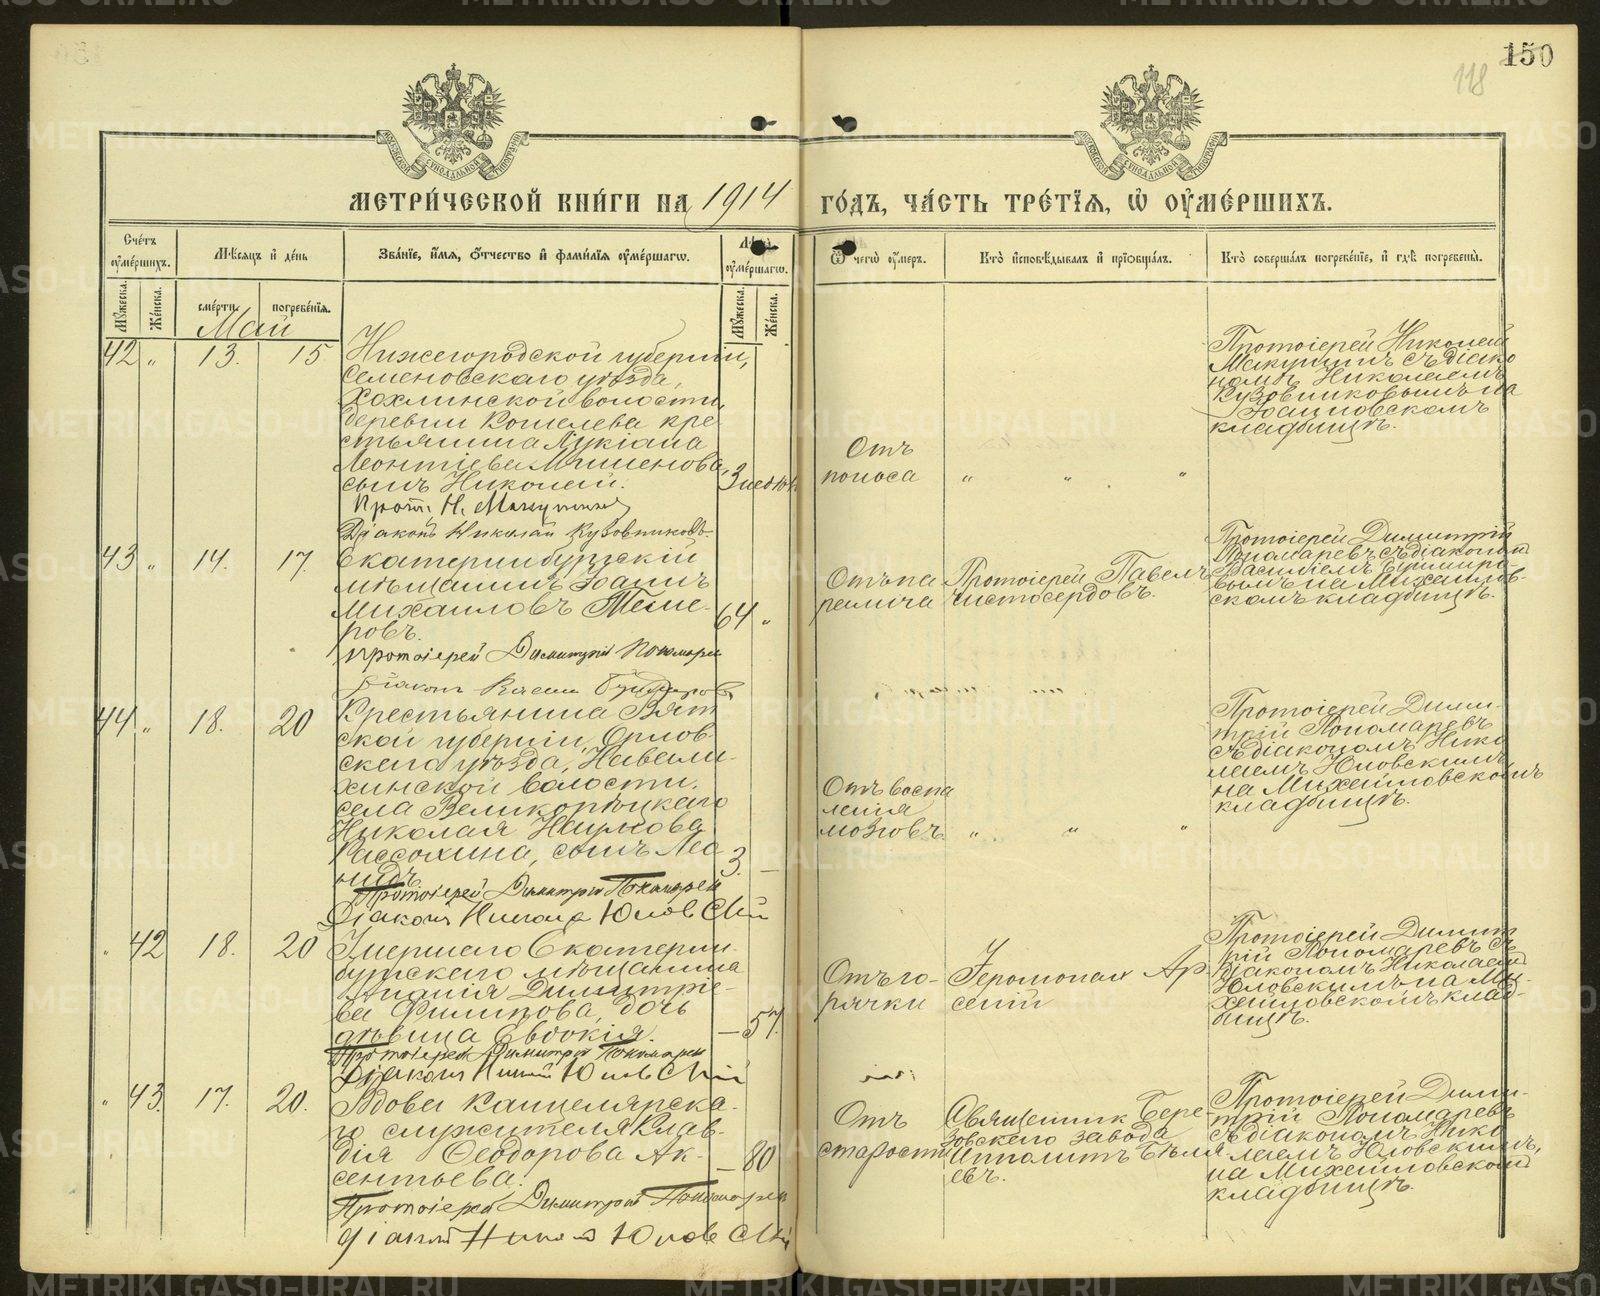 150
118
МЕТРИ́ЧЕСКОЙ КНИ́ГИ НА 1914 ГО́ДЪ, ЧА́СТЬ ТРЕ́ТІЯ, Ѡ ОУМЕ́РШИХЪ.
Сче́тъ оуме́ршихъ.
Мѣсяцъ и де́нь
Зва́нїе, и́мя, о́тчество и фами́лїя оуме́ршагѡ.
оуме́ршагѡ.
Ѿ чегѡ̀ оу́меръ.
Кто̀ исповѣ́дывалъ и прїобща́лъ.
Кто̀ соверша́лъ погребе́нїе, и гдѣ̀ погребены̀.
Мꙋ́жеска.
Же́нска.
сме́рти.
погребе́нїя.
Мꙋ́жеска.
Же́нска.
Май
42 „ 13. 15
Нижегородской губерніи,
Семеновскаго уѣзда,
Хохлинской волости,
деревни Кошелева кре-
стьянина Лукіана
Леонтіева Мишенова,
сынъ Николай.
3 недѣли
Прот. Н. Макушинъ
Діаконъ Николай Кузовниковъ
Отъ
поноса
„ „ „
Протоіерей Николай
Макушинъ съ діако
номъ Николаемъ
Кузовниковымъ на
Іоанновскомъ
кладбищѣ.
43 „ 14. 17.
Екатеринбургскій
мѣщанинъ Іоаннъ
Михаиловъ Теме-
ровъ.
64 „
Протоіерей Димитрій Пономарев
Отъ па
ралича
Протоіерей Павелъ
Чистосердовъ.
Протоіерей Димитрій
Пономаревъ съ діакономъ
Василіемъ
на Михаилов-
скомъ кладбищѣ.
44 „ 18. 20
Крестьянина Вят
ской губерніи, Орлов-
скаго уѣзда,
волости,
села Великорѣцкаго
Николая Наумова
Рассохина, сынъ Лео
нидъ
3. –
Протоіерей Димитрій Пономарев
Діаконъ Никола Юловскій
Отъ воспа
ленія
мозговъ
„ „ „
Протоіерей Дими-
трій Пономаревъ
съ діакономъ Нико
лаемъ Юловскимъ
на Михайловскомъ
кладбищѣ.
„ 42 18. 20
Умершаго Екатерин-
бургскаго мѣщанина
Ананія Димитріе-
ва Филипова, дочь
дѣвица Евдокія.
– 57.
Протоіерей Димитрій Пономарев
Діаконъ Юловскій
Отъ го-
рячки
Іеромонах Ар-
сеній
Протоіерей Димит
рій Пономаревъ съ
діакономъ Николаемъ
Юловскимъ на Ми-
хайловскомъ клад-
бищѣ.
„ 43. 17. 20.
Вдова канцелярска-
го служителя Клав-
дія Ѳеодорова Ак-
сентьева.
– 80
Протоіерей Димитрій Пономарев
Діаконъ Николай Юловскій
Отъ
старости
Священник Бере-
зовскаго завода
Ипполитъ Бѣля
евъ.
Протоіерей Дими-
трій Пономаревъ
съ діакономъ Нико
лаемъ Юловскимъ,
на Михайловскомъ
кладбищѣ.
METRIKI.GASO-URAL.RU